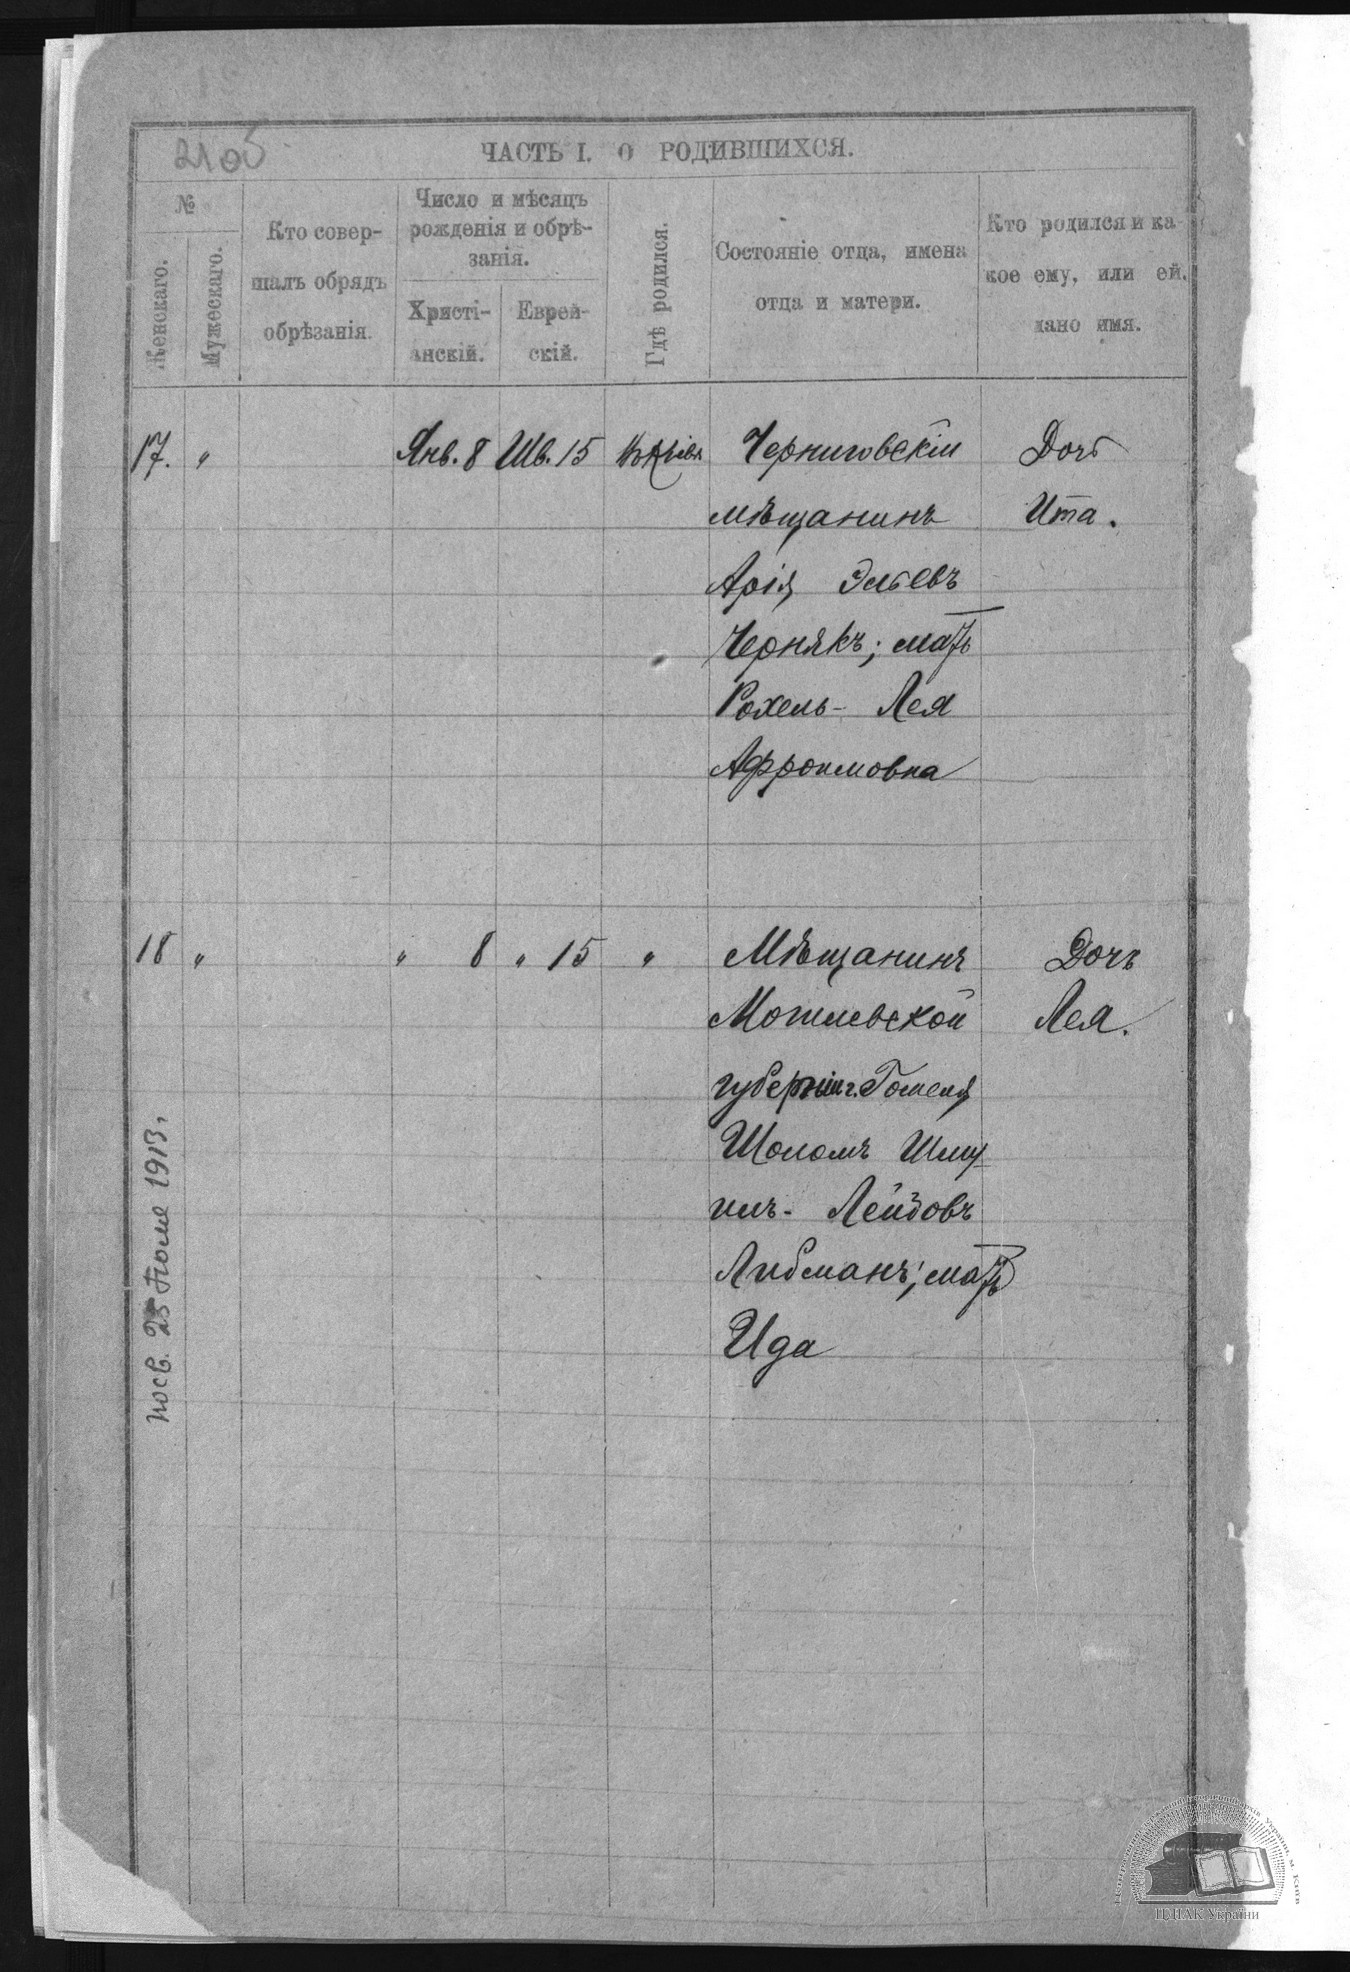 2105
ЧАСТЬ I. О РОДИВШИХСЯ.
№
Женскаго.
Мужескаго.
Кто совер-
шалъ обрядъ
обрѣзанія.
Число и мѣсяцъ
рожденія и обрѣ-
занія.
Христі-
анскій.
Еврей-
скій.
Гдѣ родился.
Состояніе отца, имена
отца и матери.
Кто родился и ка-
кое ему, или ей.
дано имя.
17. „ Янв. 8 Шв. 15 Въ Кіевѣ Черниговскій Дочь
мѣщанинъ Ита.
Арія Эльевъ
Чернякъ; мать
Рохель- Лея
Афроимовна
18 „ „ 8 „ 15 „ Мѣщанинъ Дочь
Могилевской Лея.
губерніи г. Гомеля
Шоломъ Шму-
илъ- Лейбовъ
Либманъ; мать
Ида
1913,
ЦДІАК України